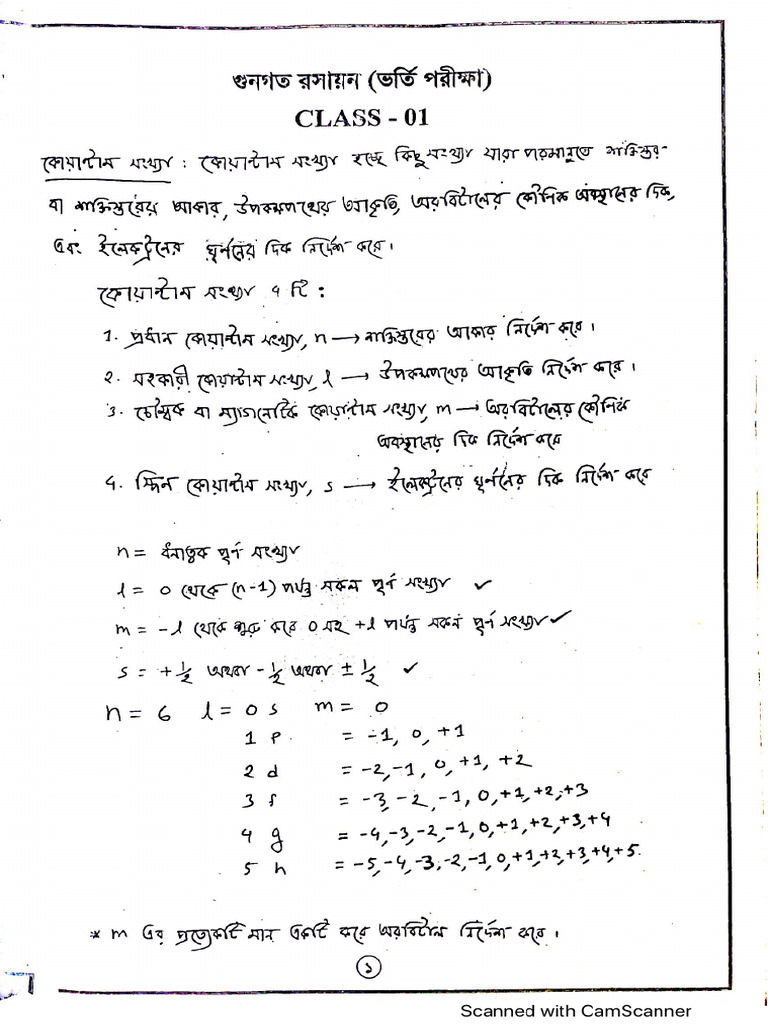 গুনগত রসায়ন (ভর্তি পরীক্ষা)
CLASS - 01
কোয়ান্টাম সংখ্যা : কোয়ান্টাম সংখ্যা হচ্ছে কিছু সংখ্যা যারা পরমানুতে শক্তিস্তর
বা শক্তিস্তরের আকার, উপকক্ষপথের আকৃতি, অরবিটালের কৌনিক অবস্থানের দিক,
এবং ইলেকট্রনের ঘূর্ননের দিক নির্দেশ করে।
কোয়ান্টাম সংখ্যা 4 টি :
1. প্রধান কোয়ান্টাম সংখ্যা, n → শক্তিস্তরের আকার নির্দেশ করে।
2. সহকারী কোয়ান্টাম সংখ্যা, l → উপকক্ষপথের আকৃতি নির্দেশ করে।
3. চৌম্বক বা ম্যাগনেটিক কোয়ান্টাম সংখ্যা, m → অরবিটালের কৌনিক
অবস্থানের দিক নির্দেশ করে
4. স্পিন কোয়ান্টাম সংখ্যা, s → ইলেকট্রনের ঘূর্ননের দিক নির্দেশ করে
n = ধনাত্মক পূর্ন সংখ্যা
l = 0 থেকে (n-1) পর্যন্ত সকল পূর্ন সংখ্যা ✓
m = -l থেকে শুরু করে 0 সহ +l পর্যন্ত সকল পূর্ন সংখ্যা ✓
s = +1/2 অথবা -1/2 অথবা ± 1/2 ✓
n = 6 l = 0 s m = 0
1 p = -1, 0, +1
2 d = -2, -1, 0, +1, +2
3 f = -3, -2, -1, 0, +1, +2, +3
4 g = -4, -3, -2, -1, 0, +1, +2, +3, +4
5 h = -5, -4, -3, -2, -1, 0, +1, +2, +3, +4, +5.
* m এর প্রত্যেকটি মান একটি করে অরবিটাল নির্দেশ করে।
১
Scanned with CamScanner